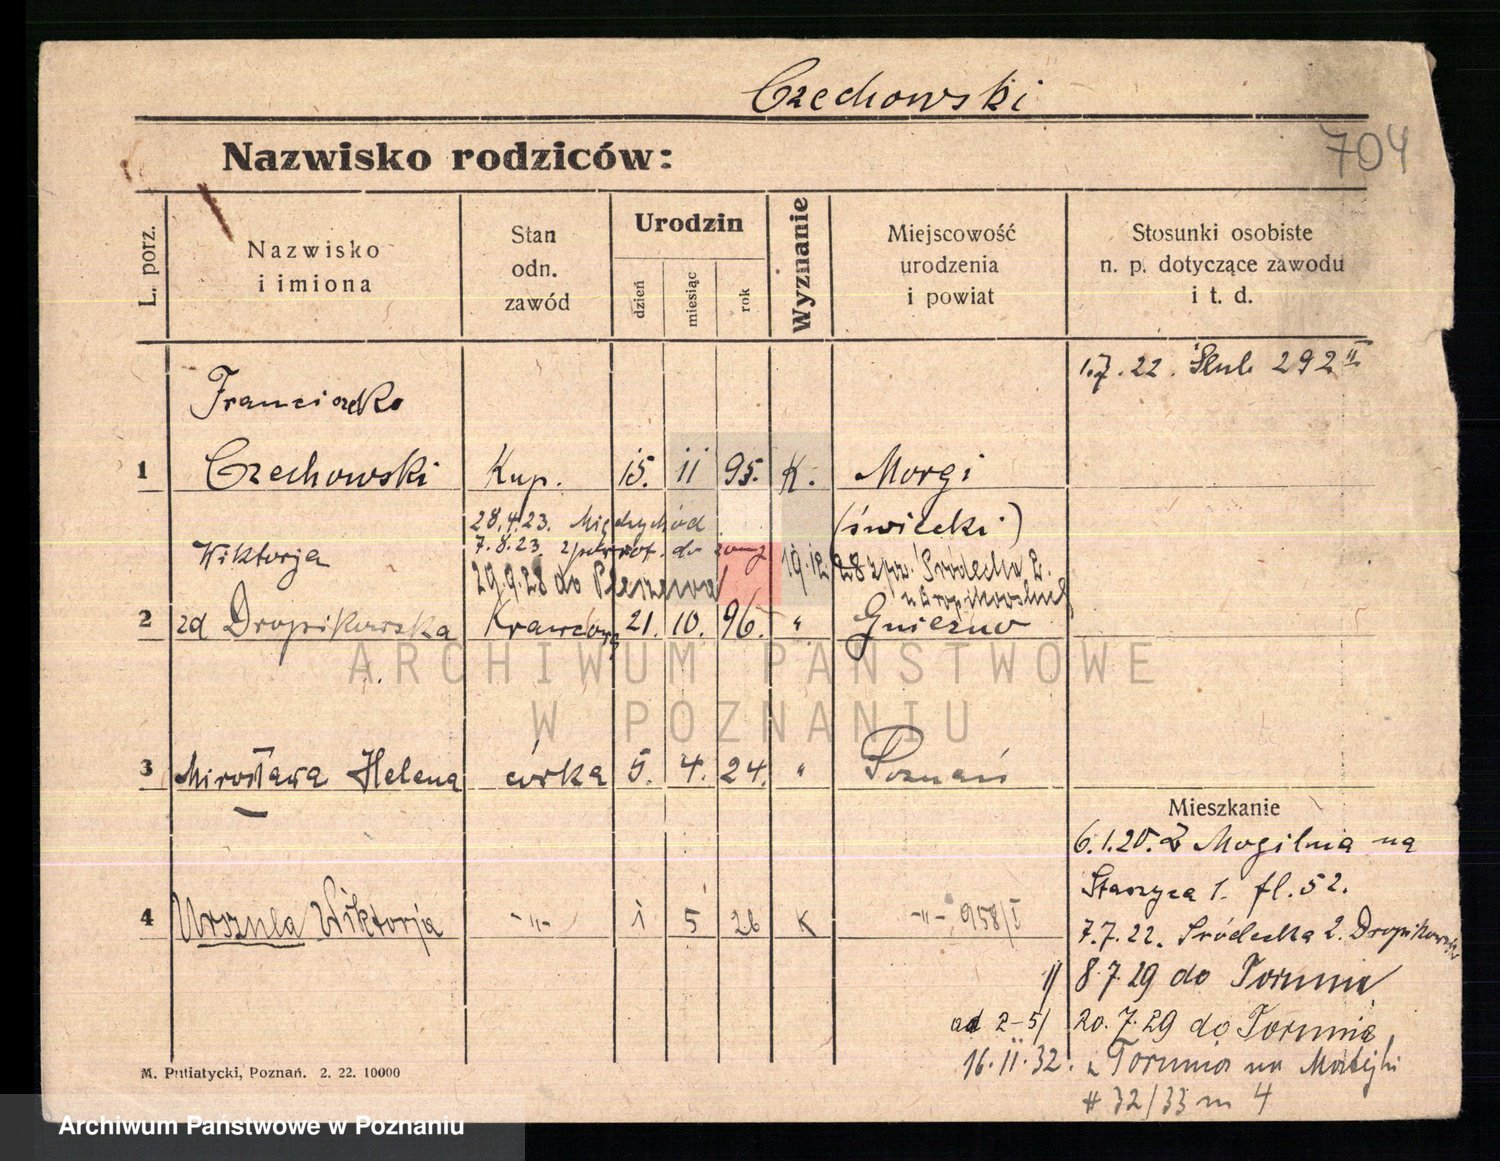 Czechowski
704
Nazwisko rodziców:
L. porz.
Nazwisko
i imiona
Stan
odn.
zawód
Urodzin
dzień
miesiąc
rok
Wyznanie
Miejscowość
urodzenia
i powiat
Stosunki osobiste
n. p. dotyczące zawodu
i t. d.
1.7.22. Ślub 292 II
Franciszek
1 Czechowski Kup. 15. 11 95. K. Morgi
28.4.23. Międzychód (świecki)
Wiktorja 7.8.23 do
29.9.28 do Pleszewa 19.12.28 Śródecka 2.
2 zd Dropikowska Krawcowa 21. 10. 96. " Gniezno
ARCHIWUM PAŃSTWOWE
W POZNANIU
3 Mirosława Helena córka 5. 4. 24. " Poznań
Mieszkanie
6.1.20. z Mogilna na
Staszyca 1. fl. 52.
4 Urszula Wiktorja -"- 1 5 26 K -"- 958/I
7.7.22. Śródecka 2. Dropikowska
1/ 8.7.29 do Torunia
ad 2-5/ 20.7.29 do Torunia
16.11.32. z Torunia na Matejki
# 32/33 m 4
M. Putiatycki, Poznań. 2. 22. 10000
Archiwum Państwowe w Poznaniu